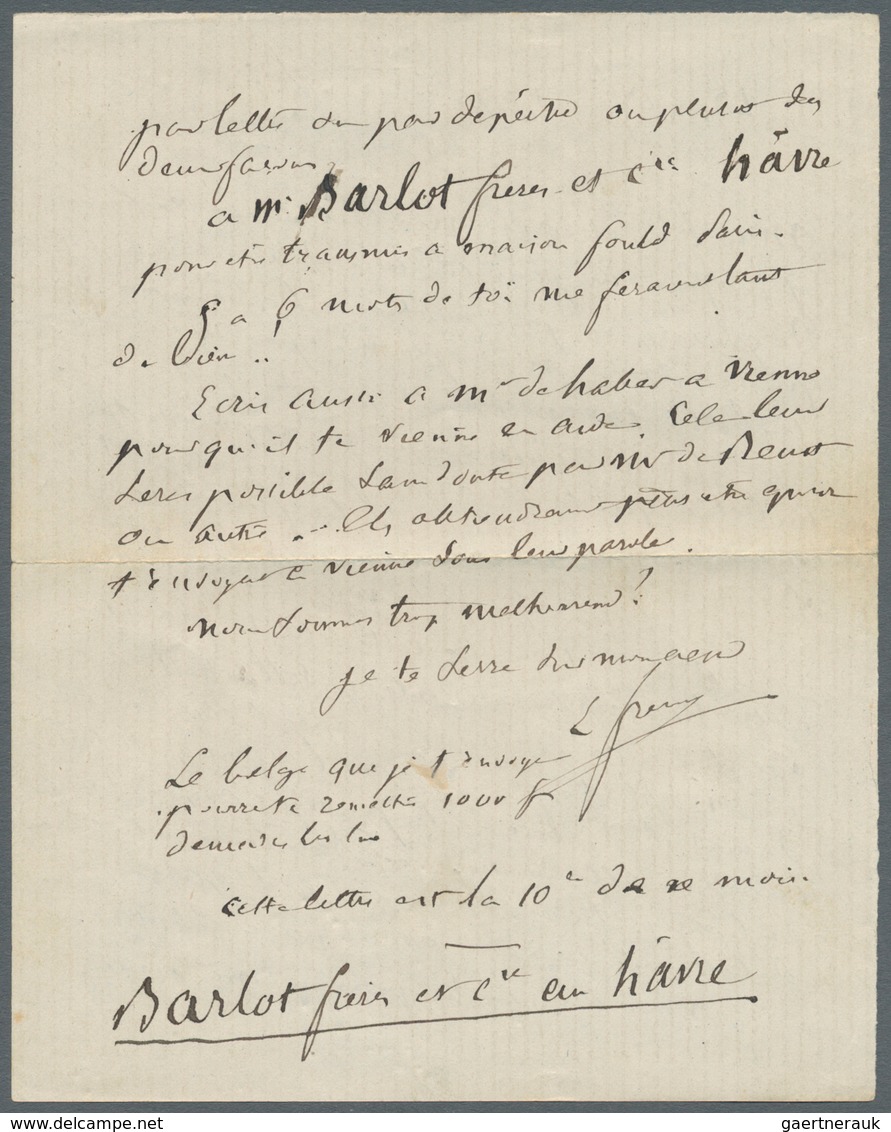 par lettre ou par depêche ou plutot des
deux façons
a Mr Barlot freres et Cie hâvre
pour etre transmis a maison fould Paris.
5 a 6 mots de toi me feraient tant
de bien !!
Ecris aussi a Mr de haber a Vienne
pour qu'il te vienne en aide. Cela leur
sera possible sans doute par Mr de Beust
ou autre ... Ils obtiendraient peut etre qu'on
t'envoyat a Vienne sous leur parole.
nous sommes trop malheureux !
je te serre sur mon cœur
L fremy
Le belge que je t'envoye
pourra te remettre 1000 f
demandes les lui
cette lettre est la 10e de ce mois.
Barlot freres et Cie au hâvre
gaertnerauk